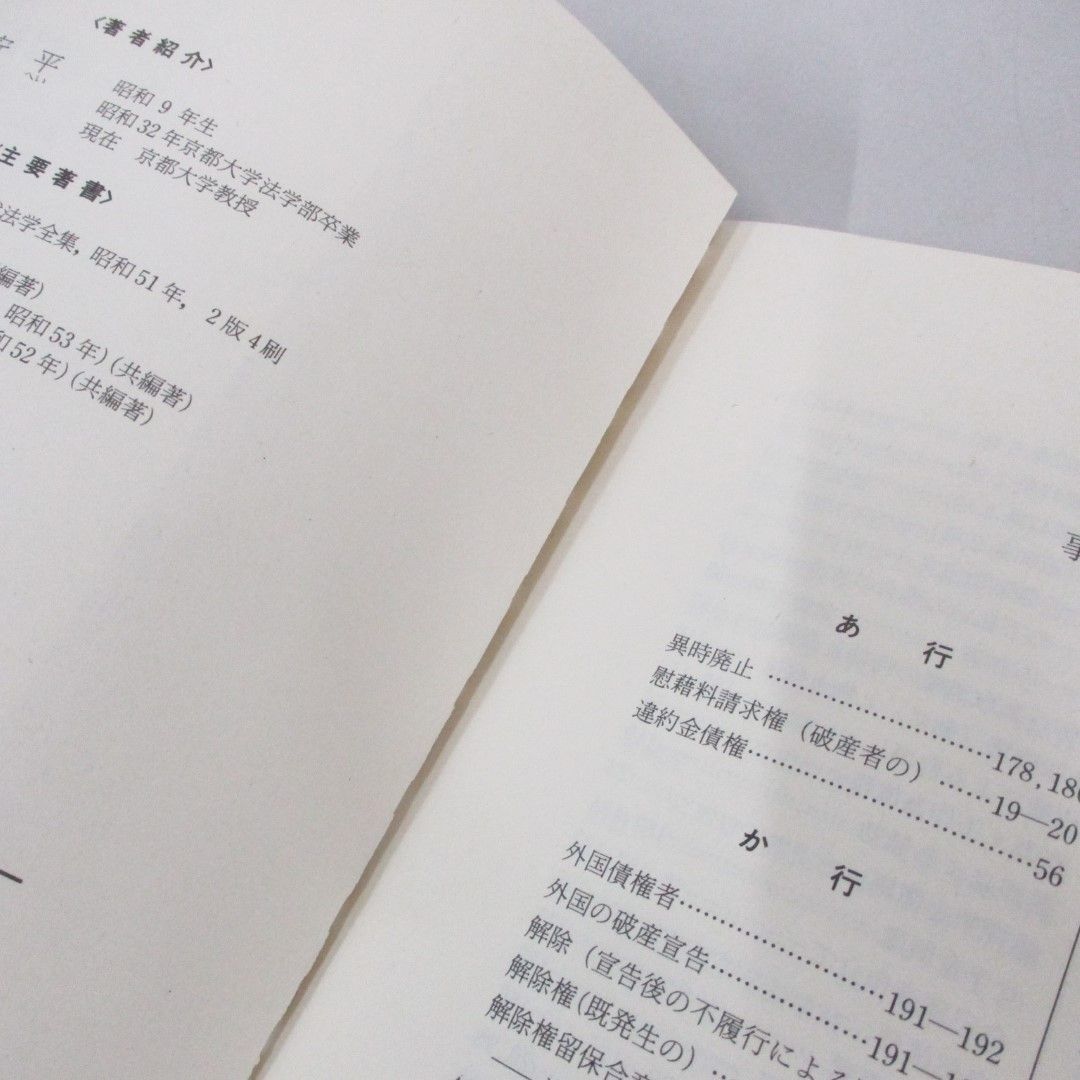 〈著者紹介〉
平
へい
昭和 9 年生
昭和32年京都大学法学部卒業
現在 京都大学教授
主要著書〉
法学全集, 昭和51年, 2版4刷
編著)
昭和53年)(共編著)
52年)(共編著)
事
あ 行
異時廃止……………………178, 18
慰藉料請求権 (破産者の) ……19—20
違約金債権……………………………56
か 行
外国債権者……………………191—192
外国の破産宣告………………191—
解除 (宣告後の不履行による
解除権(既発生の)…
解除権留保合意